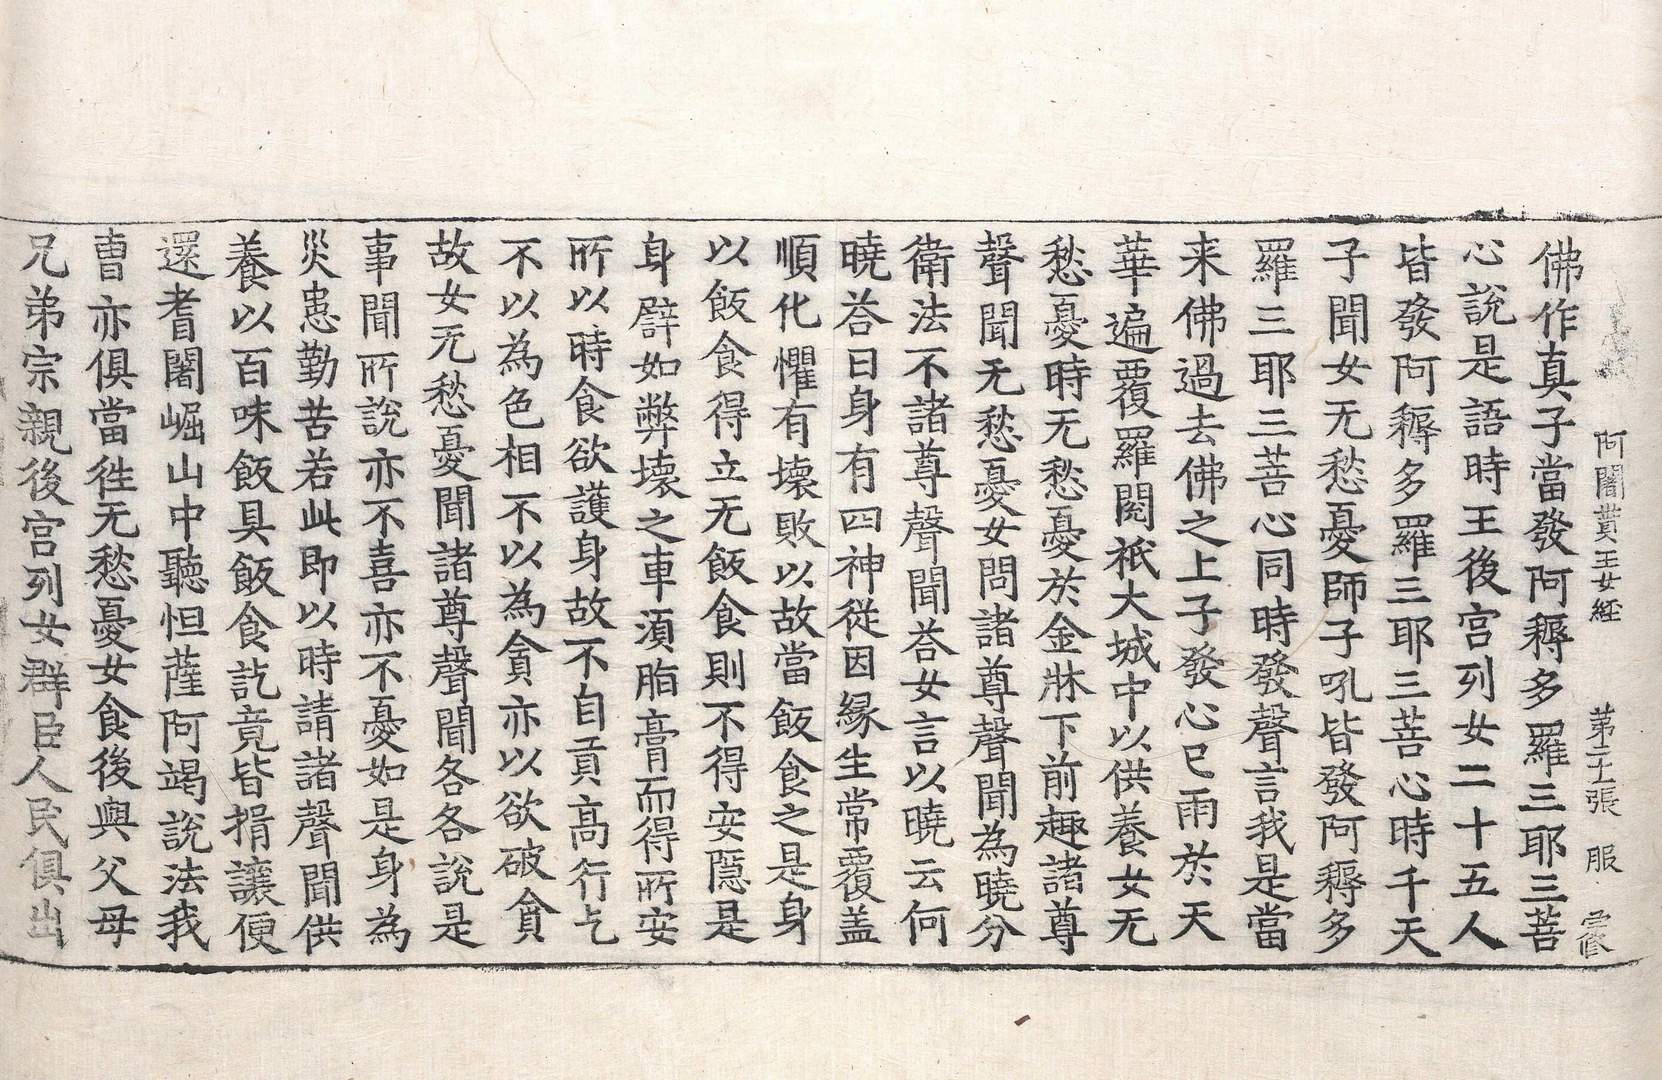 阿闍貰王女經 第二十張 服
佛作真子當發阿耨多羅三耶三菩
心說是語時王後宮列女二十五人
皆發阿耨多羅三耶三菩心時千天
子聞女无愁憂師子吼皆發阿耨多
羅三耶三菩心同時發聲言我是當
来佛過去佛之上子發心已雨於天
華遍覆羅閱祇大城中以供養女无
愁憂時无愁憂於金牀下前趣諸尊
聲聞无愁憂女問諸尊聲聞為曉分
衛法不諸尊聲聞荅女言以曉云何
曉荅曰身有四神從因緣生常覆盖
順化懼有壞敗以故當飯食之是身
以飯食得立无飯食則不得安隱是
身譬如弊壞之車湏脂膏而得所安
所以時食欲護身故不自貢高行乞
不以為色相不以為貪亦以欲破貪
故女无愁憂聞諸尊聲聞各各說是
事聞所說亦不喜亦不憂如是身為
災患勤苦若此即以時請諸聲聞供
養以百味飯具飯食訖竟皆捐讓便
還耆闍崛山中聽怛薩阿竭說法我
曹亦俱當徃无愁憂女食後與父母
兄弟宗親後宮列女群臣人民俱出